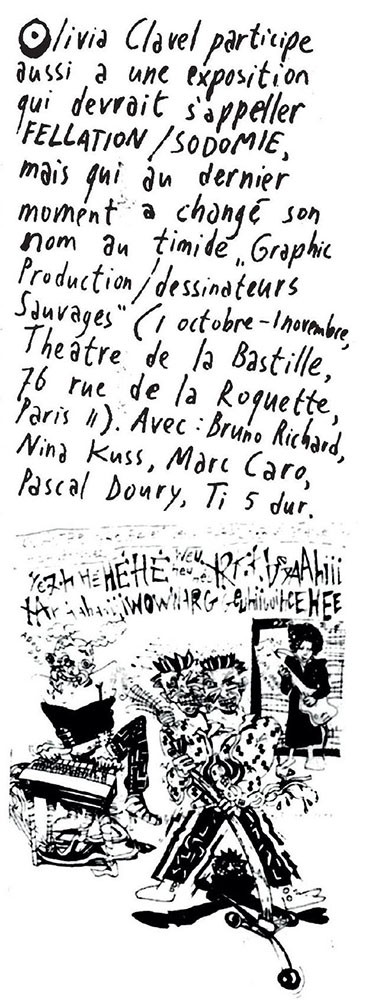 Olivia Clavel participe
aussi a une exposition
qui devrait s'appeller
"FELLATION/SODOMIE,
mais qui au dernier
moment a changé son
nom au timide „Graphic
Production/dessinateurs
Sauvages" (1 octobre-1novembre,
Theatre de la Bastille,
76 rue de la Roquette,
Paris 11). Avec: Bruno Richard,
Nina Kuss, Marc Caro,
Pascal Doury, Ti 5 dur.
HÉHÉ
WOW
HEE